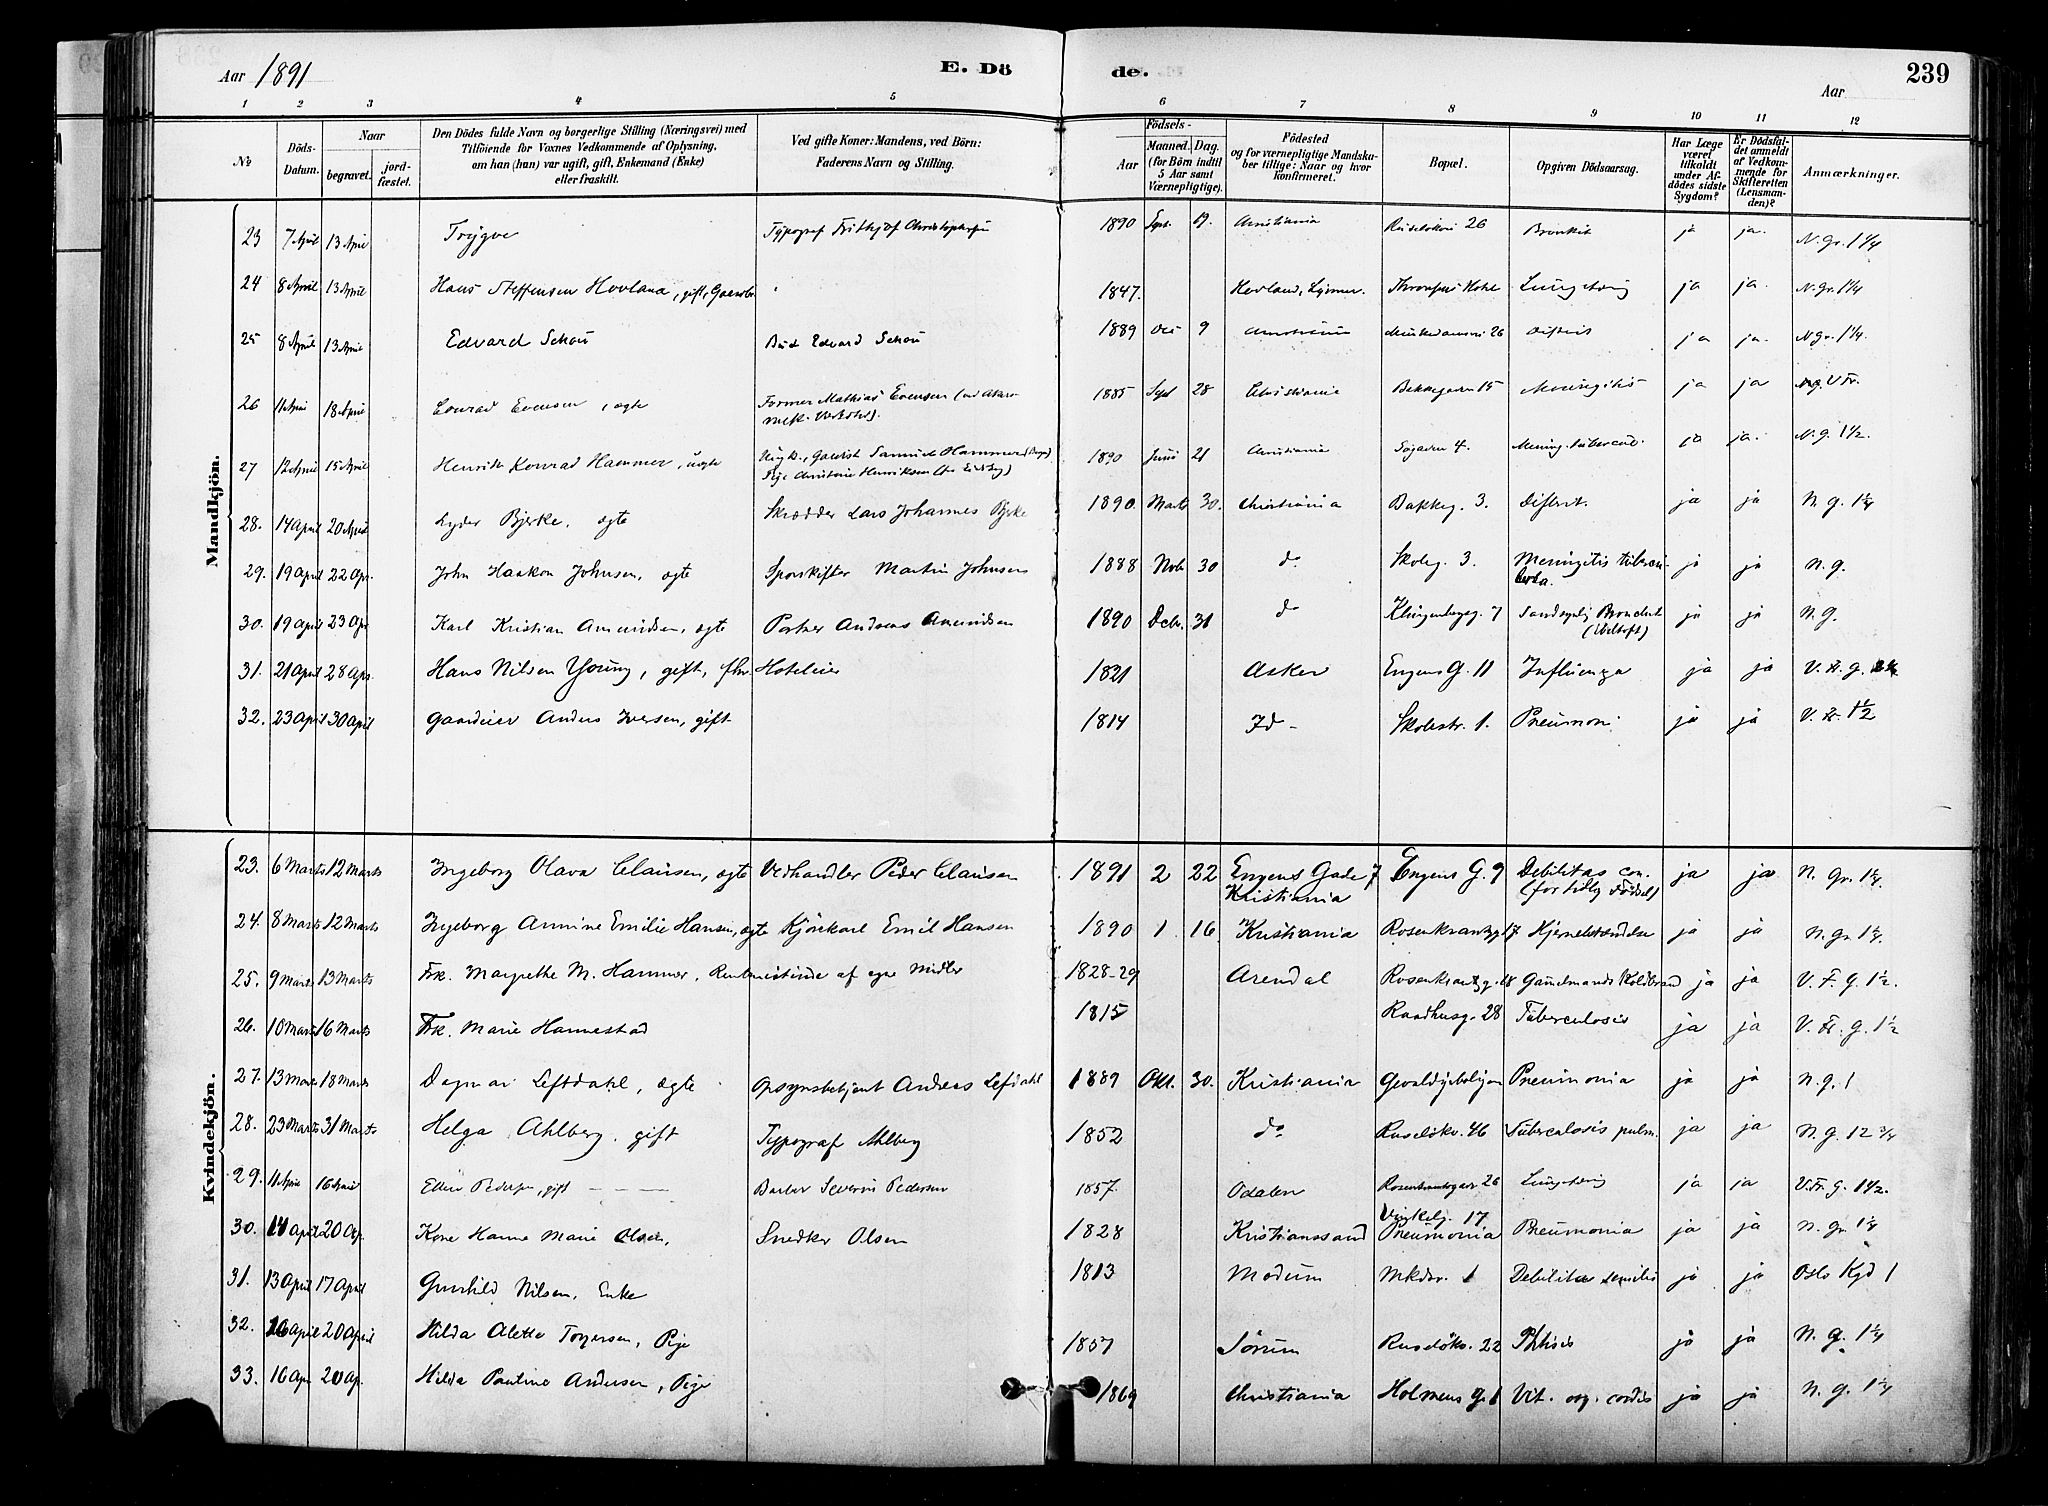 Aar 1891
E. Dö
de.
Aar
239
1 2 3 4 5 6 7 8 9 10 11 12
No
Döds-Datum.
Naar
begravet.
jord-fæstet.
Den Dödes fulde Navn og borgerlige Stilling (Næringsvei) med
Tilföiende for Voxnes Vedkommende af Oplysning,
om han (hun) var ugift, gift, Enkemand (Enke)
eller fraskilt.
Ved gifte Koner: Mandens, ved Börn:
Faderens Navn og Stilling.
Födsels-
Aar
Maaned. Dag.
(for Börn indtil
5 Aar samt
Værnepligtige).
Födested
og for værnepligtige Mandska-
ber tillige: Naar og hvor
konfirmeret.
Bopæl.
Opgiven Dödsaarsag.
Har Læge
været
tilkaldt
under Af-
dödes sidste
Sygdom?
Er Dödsfal-
det anmeldt
af Vedkom-
mende for
Skifteretten
(Lensman-
den)?
Anmærkninger.
Mandkjön.
23 7 April 13 April Trygve Typograf Frithjof Christophersen 1890 Sept. 19. Christiania Ruseløkvei 26 Bronkit ja ja. N. Gr. 1 1/4
24 8 April 13 April Hans Steffensen Hovland, gift, 1847. Hovland, ja ja. N. Gr. 1 1/4
25 8 April 13 April Edvard Schou Bud Edvard Schou 1889 Oct 9 Christiania Munkedamsvei 26 Difterit ja ja. N Gr. 1 1/4.
26 11 April 18 April Conrad Evensen, ægte Former Mathias Evensen (ved Akers
mek. Værksted). 1885 Sept 28 Christiania Bakkegaden 15 Meningitis ja ja V Fr.
27 12 April 15 April Henrik Konrad Hammer, uægte Samuel Hammer
Pige Christine Henriksen 1890 Juni 21 Christiania Søgaden 4. Mening. tubercul. ja ja. N. g. 1 1/2.
28. 14 April 20 April Lyder Bjerke, ægte Skrædder Lars Johannes Bjerke 1890. Marts 30. Christiania Bakkeg. 3. Difterit. ja ja N. g. 1 1/4
29. 19 April 22 Apr. John Haakon Johnsen, ægte Sporskifter Martin Johnsen 1888 Nob. 30 do Skoleg. 3. Meningitis tubercu-
losa. ja ja N. g.
30. 19 April 23 Apr Karl Kristian Amundsen, ægte Portner Andreas Amundsen 1890 Decbr. 31 do Klingenbergg. 7 Sandsynlig Bronchit
ja ja N. g.
31. 21 April 28 Apr. Hans Nilsen Young, gift, fhv. Hoteleier 1821 Asker Engens G. 11 Influenza ja ja V. Fr. g.
32. 23 April 30 April Gaardeier Anders Iversen, gift 1814 Id - Skolestr. 1. Pneumoni. ja ja V. Fr. 1 1/2
Kvindekjön.
23. 6 Marts 12 Marts Ingeborg Olava Clausen, ægte Vedhandler Peder Clausen 1891 2 22 Engens Gade 7
Kristiania Engens G. 9 Debilitas con.
(for tidlig Födsel) ja ja N. Gr. 1 1/4.
24. 8 Marts 12 Marts Ingeborg Annine Emilie Hansen, ægte Kjörekarl Emil Hansen 1890 1. 16. Kristiania Rosenkrantzg 17 Hjernebetændelse ja ja N. gr. 1 1/4.
25. 9 Marts 13 Marts Frk. Margrethe M. Hammer, Rentenistinde af egne Midler 1828-29 Arendal Rosenkrantzg. 18 Gammelmands Koldbrand ja ja V. F. g. 1 1/2.
26. 10 Marts 16 Marts Frk. Marie Hannestad 1815 Raadhusg. 28 Tuberculosis ja ja V. Fr. g. 1 1/2
27. 13 Marts 18 Marts Dagmar Leftdahl, ægte Opsynsbetjent Anders Lefdahl 1889 Okt. 30. Kristiania Pneumonia ja ja N. g. 1
28. 23 Marts 31 Marts Helga Ahlberg, gift Typograf Ahlberg 1852 do Ruselökv. 46 Tuberculosis pulm. ja ja N. g. 12 3/4
29. 11 April 16 April Pedersen, gift Barber Severin Pedersen 1857. Odalen 26 ja ja V. Fr. g. 1 1/2.
30. 14 April 20 Ap. Kone Hanne Marie Olsen, Snedker Olsen 1828 Kristianssand Vinkelg. 17
Pneumonia Pneumonia ja ja N. gr. 1 1/4
31. 13 April 17 April Gunhild Nilsen, Enke 1813 Modum Mkdsv. 1 Debilitas senilis ja ja Oslo Kgd 1
32. 16 April 20 April Hilda Alette Torgersen, Pige 1857 Sörum Ruselökv. 22 Phtisis ja ja N. g. 1 1/4
33. 16 Apr 20 Ap. Hilda Pauline Andersen, Pige 1869 Christiania Holmens G. 1 Vit. org. cordis ja ja N. g. 1 1/4